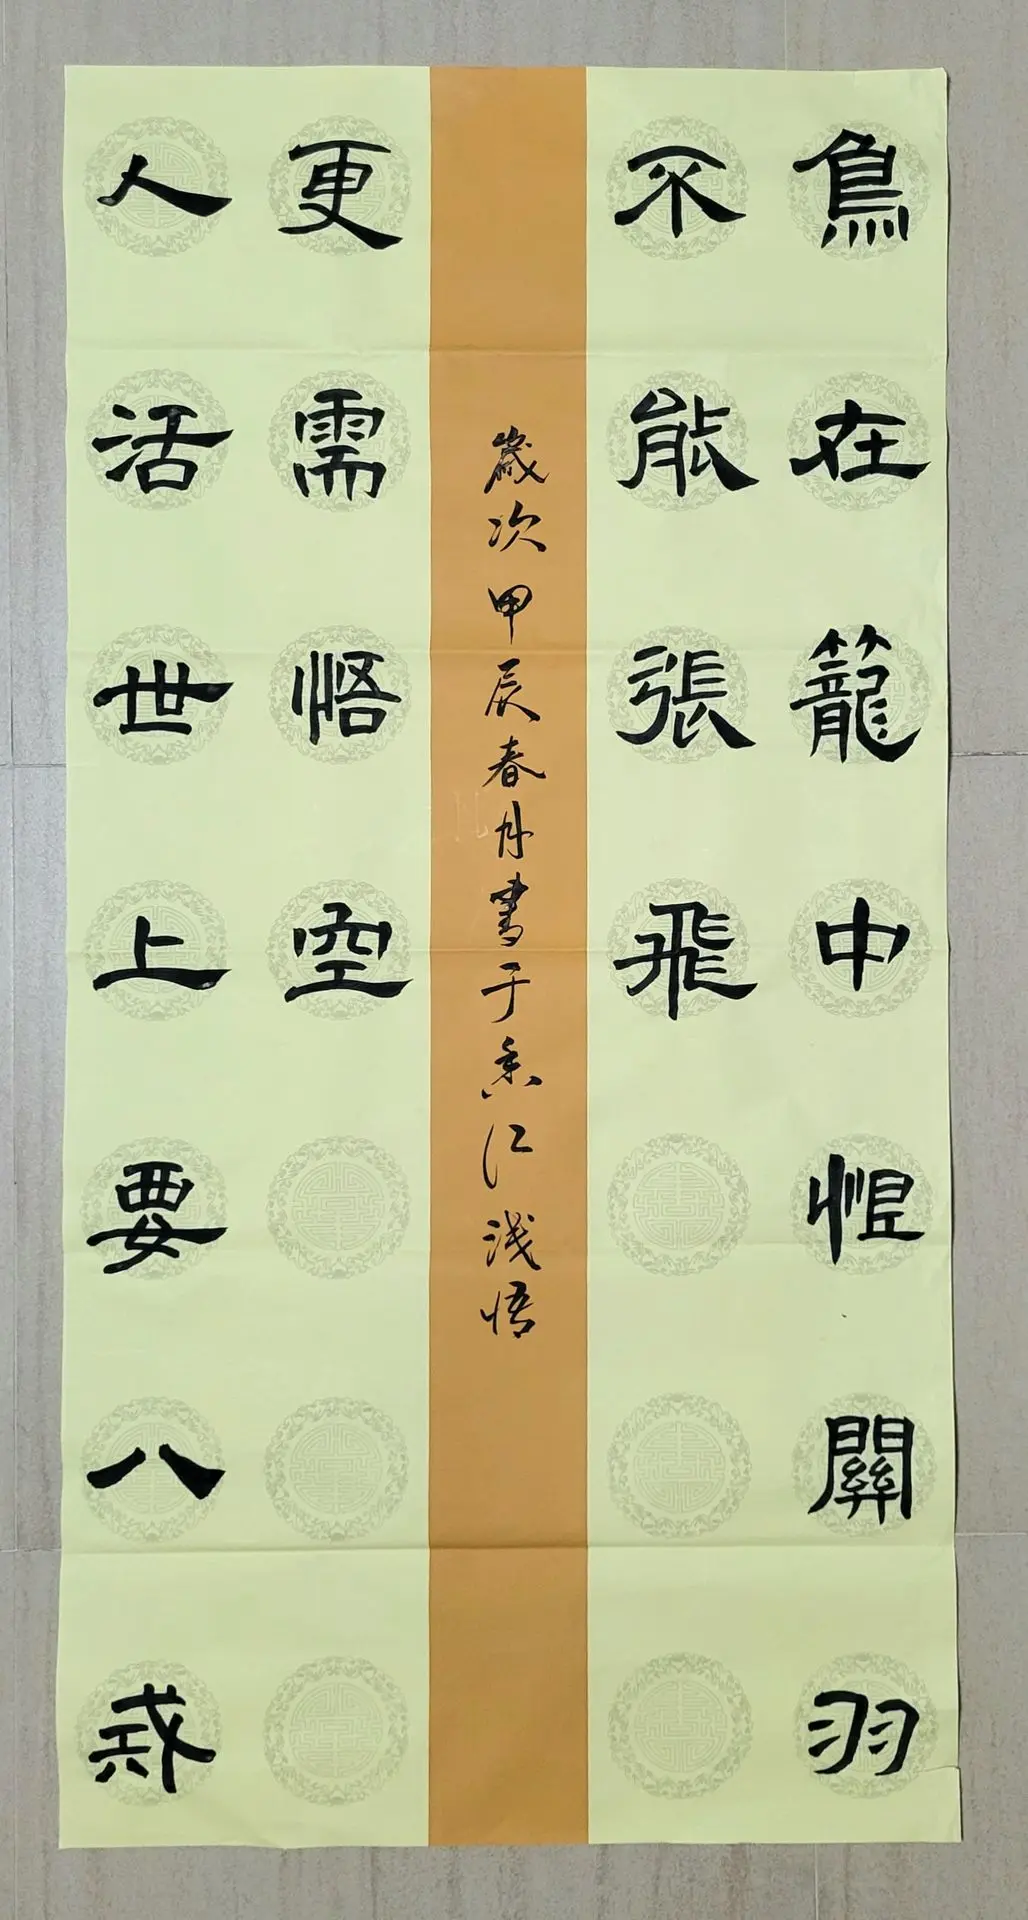 鳥在籠中恨關羽
不能張飛
人活世上要八戒
更需悟空
歲次甲辰春月書于香江淺悟